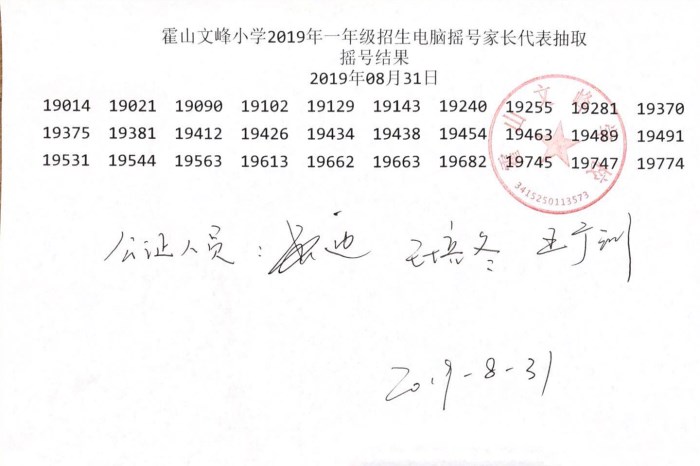 霍山文峰小学2019年一年级招生电脑摇号家长代表抽取
摇号结果
2019年08月31日
19014 19021 19090 19102 19129 19143 19240 19255 19281 19370
19375 19381 19412 19426 19434 19438 19454 19463 19489 19491
19531 19544 19563 19613 19662 19663 19682 19745 19747 19774
霍山文峰学校
3415250113573
公证人员：
2019-8-31